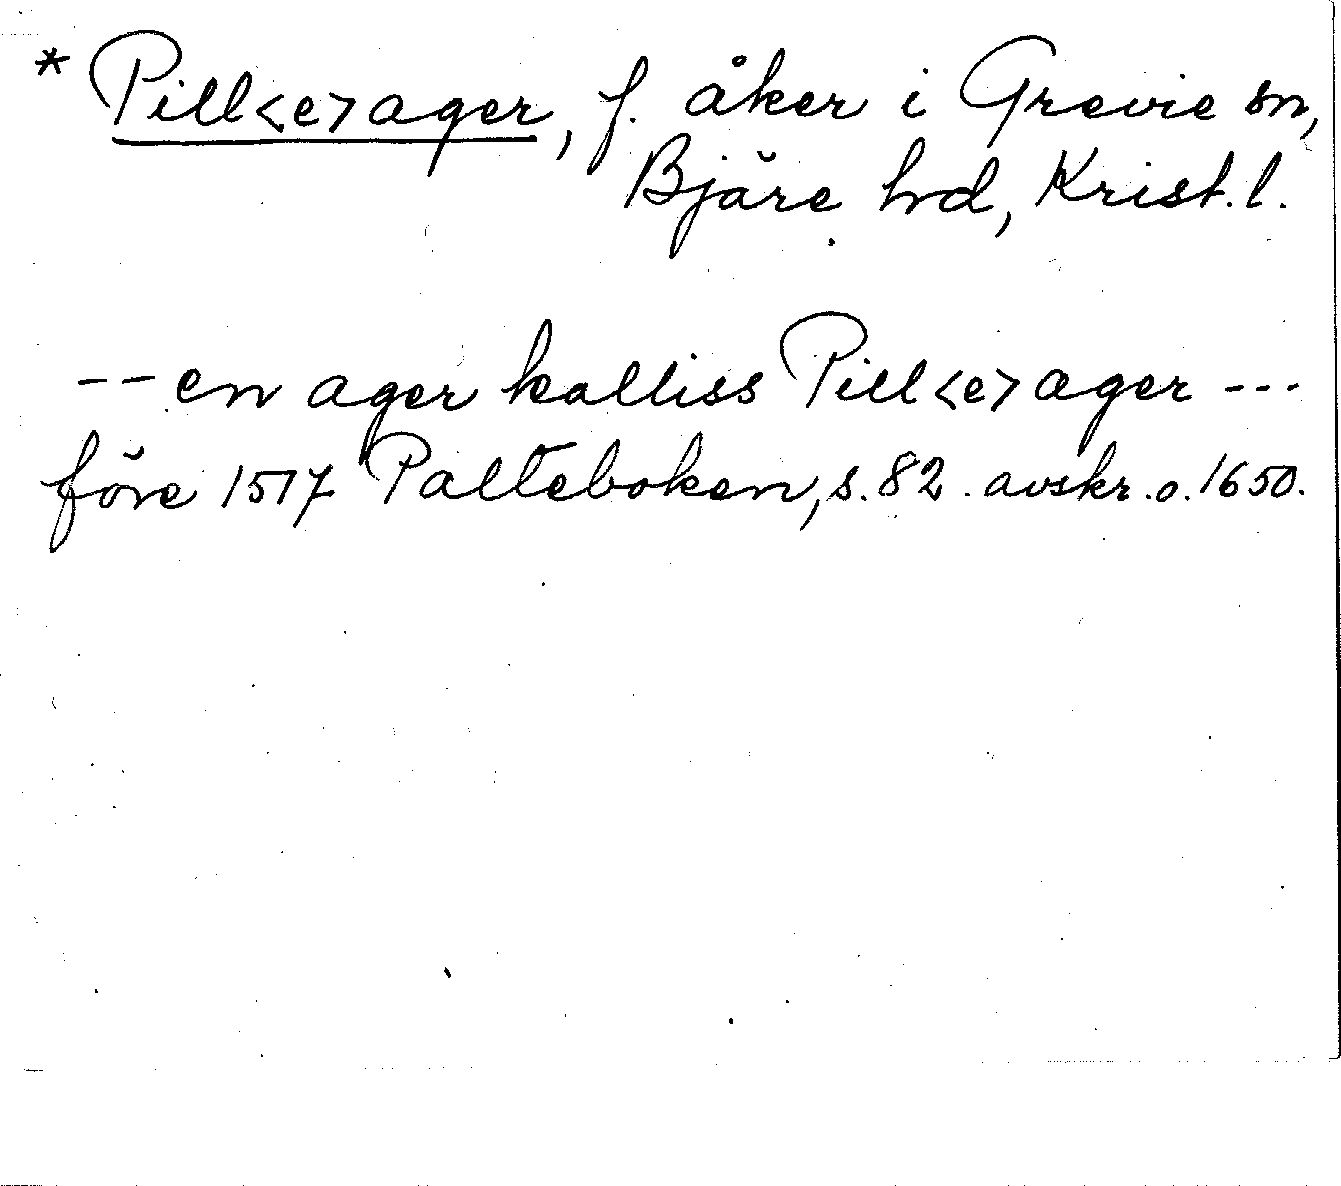 * Pill<e>ager, f. åker i Grevie sn,
Bjäre hd, Krist. l.
-- en ager kalliss Pill<e>ager ---
före 1517 Palteboken, s. 82. avskr. o. 1650.